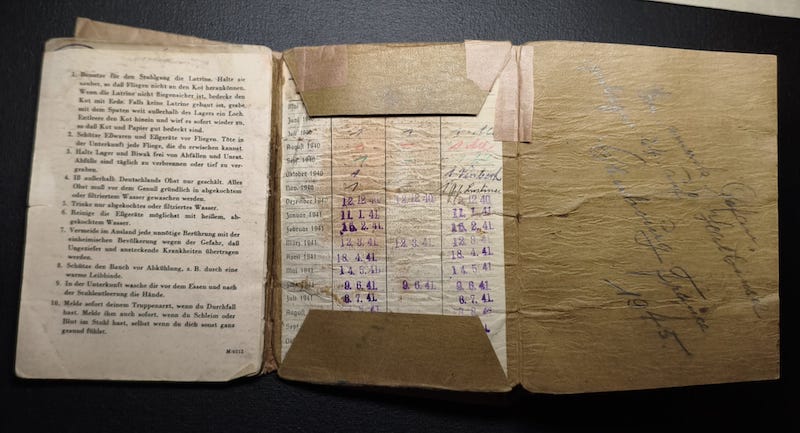 1. Benutze für den Stuhlgang die Latrine. Halte sie
sauber, so daß Fliegen nicht an den Kot herankönnen.
Wenn die Latrine nicht fliegensicher ist, bedecke den
Kot mit Erde. Falls keine Latrine gebaut ist, grabe
mit dem Spaten weit außerhalb des Lagers ein Loch.
Entleere den Kot hinein und wirf es sofort wieder zu,
so daß Kot und Papier gut bedeckt sind.
2. Schütze Eßwaren und Eßgeräte vor Fliegen. Töte in
der Unterkunft jede Fliege, die du erwischen kannst.
3. Halte Lager und Biwak frei von Abfällen und Unrat.
Abfälle sind täglich zu verbrennen oder tief zu ver-
graben.
4. Iß außerhalb Deutschlands Obst nur geschält. Alles
Obst muß vor dem Genuß gründlich in abgekochtem
oder filtriertem Wasser gewaschen werden.
5. Trinke nur abgekochtes oder filtriertes Wasser.
6. Reinige die Eßgeräte möglichst mit heißem, ab-
gekochtem Wasser.
7. Vermeide im Ausland jede unnötige Berührung mit der
einheimischen Bevölkerung wegen der Gefahr, daß
Ungeziefer und ansteckende Krankheiten übertragen
werden.
8. Schütze den Bauch vor Abkühlung, z. B. durch eine
warme Leibbinde.
9. In der Unterkunft wasche dir vor dem Essen und nach
der Stuhlentleerung die Hände.
10. Melde sofort deinem Truppenarzt, wenn du Durchfall
hast. Melde ihm auch sofort, wenn du Schleim oder
Blut im Stuhl hast, selbst wenn du dich sonst ganz
gesund fühlst.
M/0212
Mai
Juni 1940
Juli 1940
August 1940
Sept. 1940
Oktober 1940
Nov. 1940
Dezember 1940 12. 12. 40 12. 40
Januar 1941 11. 1. 41. 11. 1. 41.
Februar 1941 15. 2. 41. 15. 2. 41.
März 1941 12. 3. 41 12. 3. 41. 12. 3. 41
April 1941 18. 4. 41 18. 4. 41
Mai 1941 14. 5. 41 14. 5. 41
Juni 1941 9. 6. 41. 9. 6. 41. 9. 6. 41
Juli 1941 8. 7. 41. 8. 7. 41.
August
Sept
1945